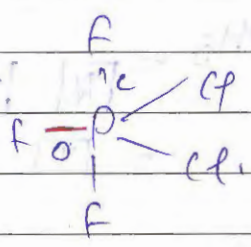 F
Cl
F P
Cl
F